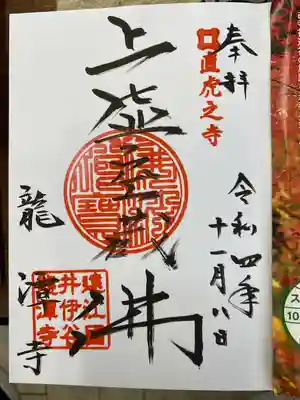 奉拝
直虎之寺
令和四年
十一月八日
上虚空蔵𦬇
龍潭寺
遠江国
井伊谷
龍潭寺
10